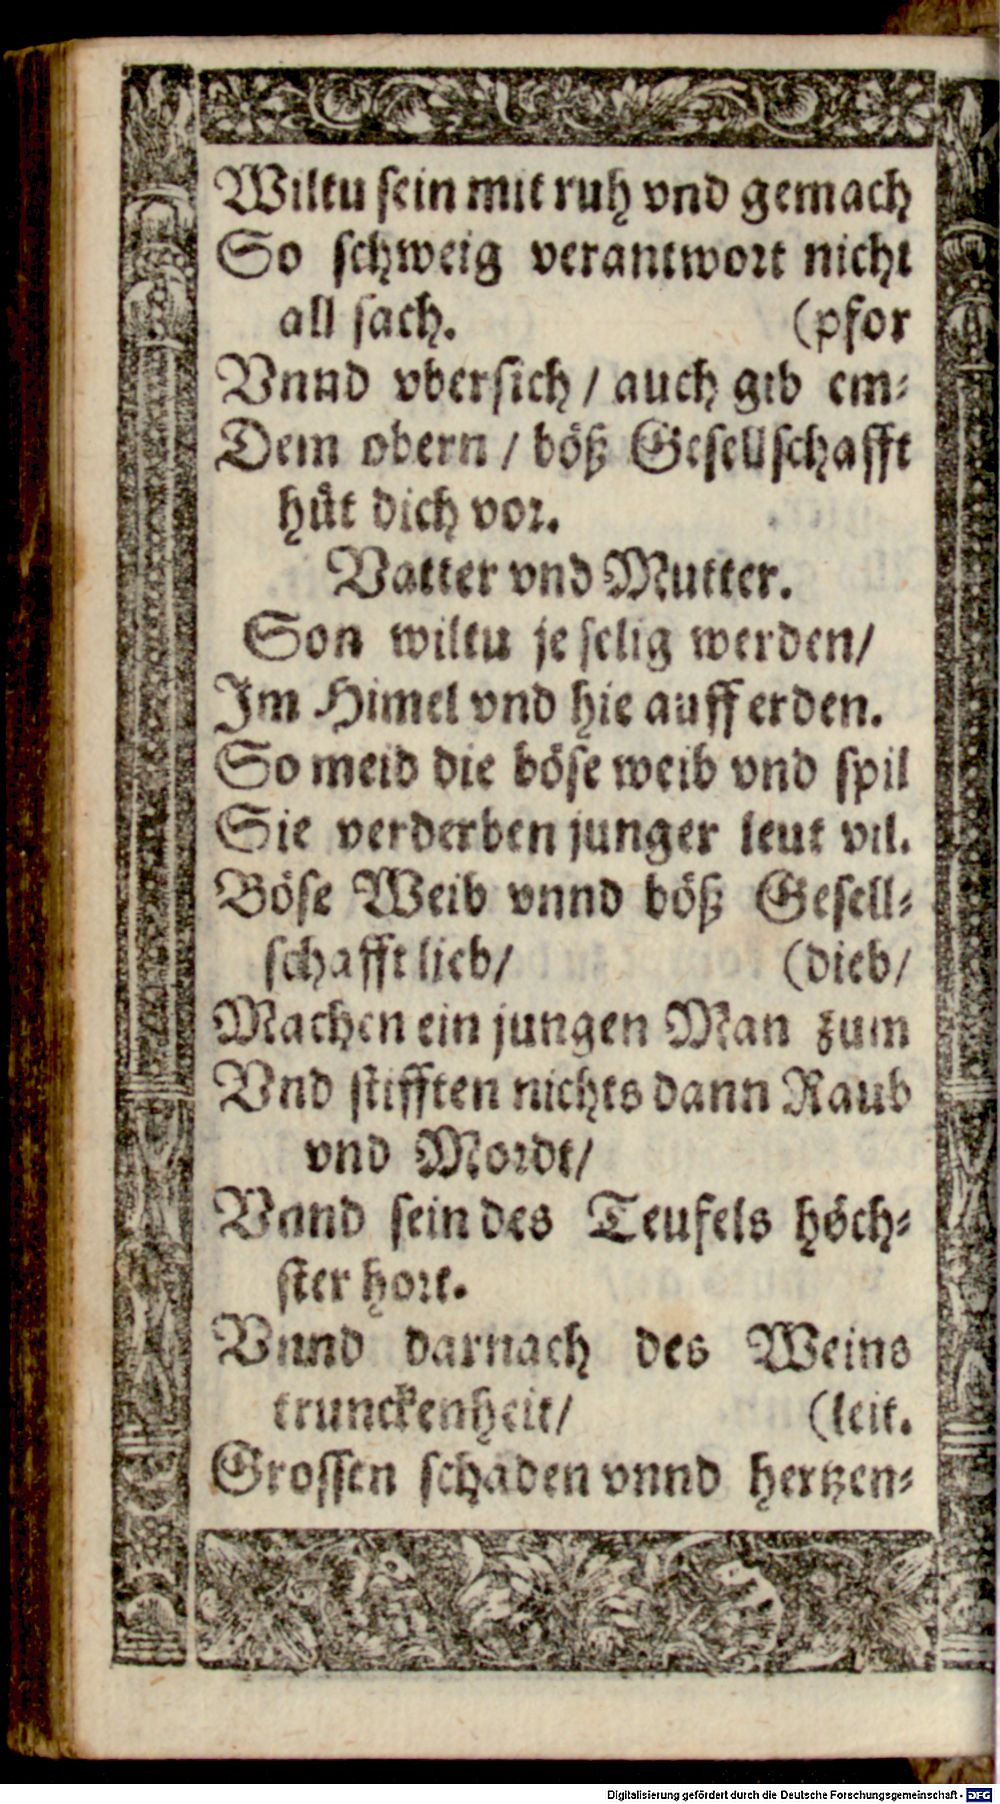 Wiltu sein mit ruh vnd gemach
So schweig verantwort nicht
all sach. (pfor
Vnnd vbersich / auch gib em-
Dem obern / böß Gesellschafft
hüt dich vor.
Vatter vnd Mutter.
Son wiltu je selig werden/
Im Himel vnd hie auff erden.
So meid die böse weib vnd spil
Sie verderben junger leut vil.
Böse Weib vnnd böß Gesell-
schafft lieb/ (dieb/
Machen ein jungen Man zum
Vnd stifften nichts dann Raub
vnd Mordt/
Vnnd sein des Teufels höch-
ster hort.
Vnnd darnach des Weins
trunckenheit/ (leit.
Grossen schaden vnnd hertzen-
Digitalisierung gefördert durch die Deutsche Forschungsgemeinschaft - DFG